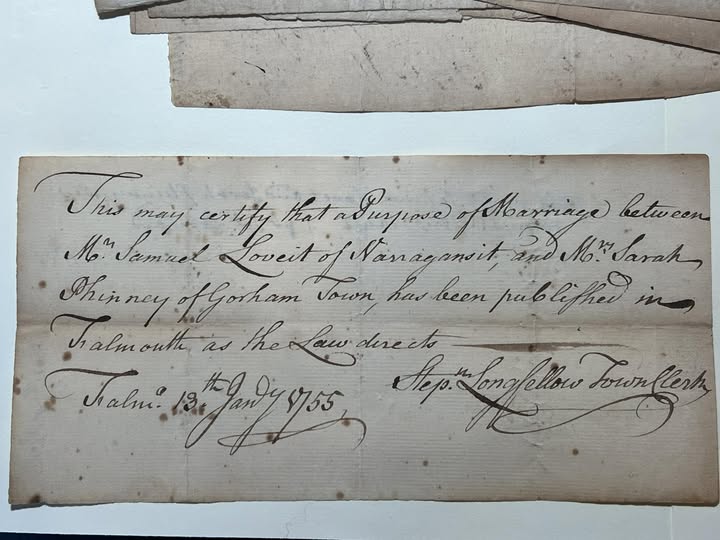 This may certify that a Purpose of Marriage between
Mr. Samuel Loveit of Narragansit, and Mrs. Sarah
Phinney of Gorham Town, has been published in
Falmouth as the Law directs
Stepn. Longfellow Town Clerk
Falmo. 13th Jandy 1755,